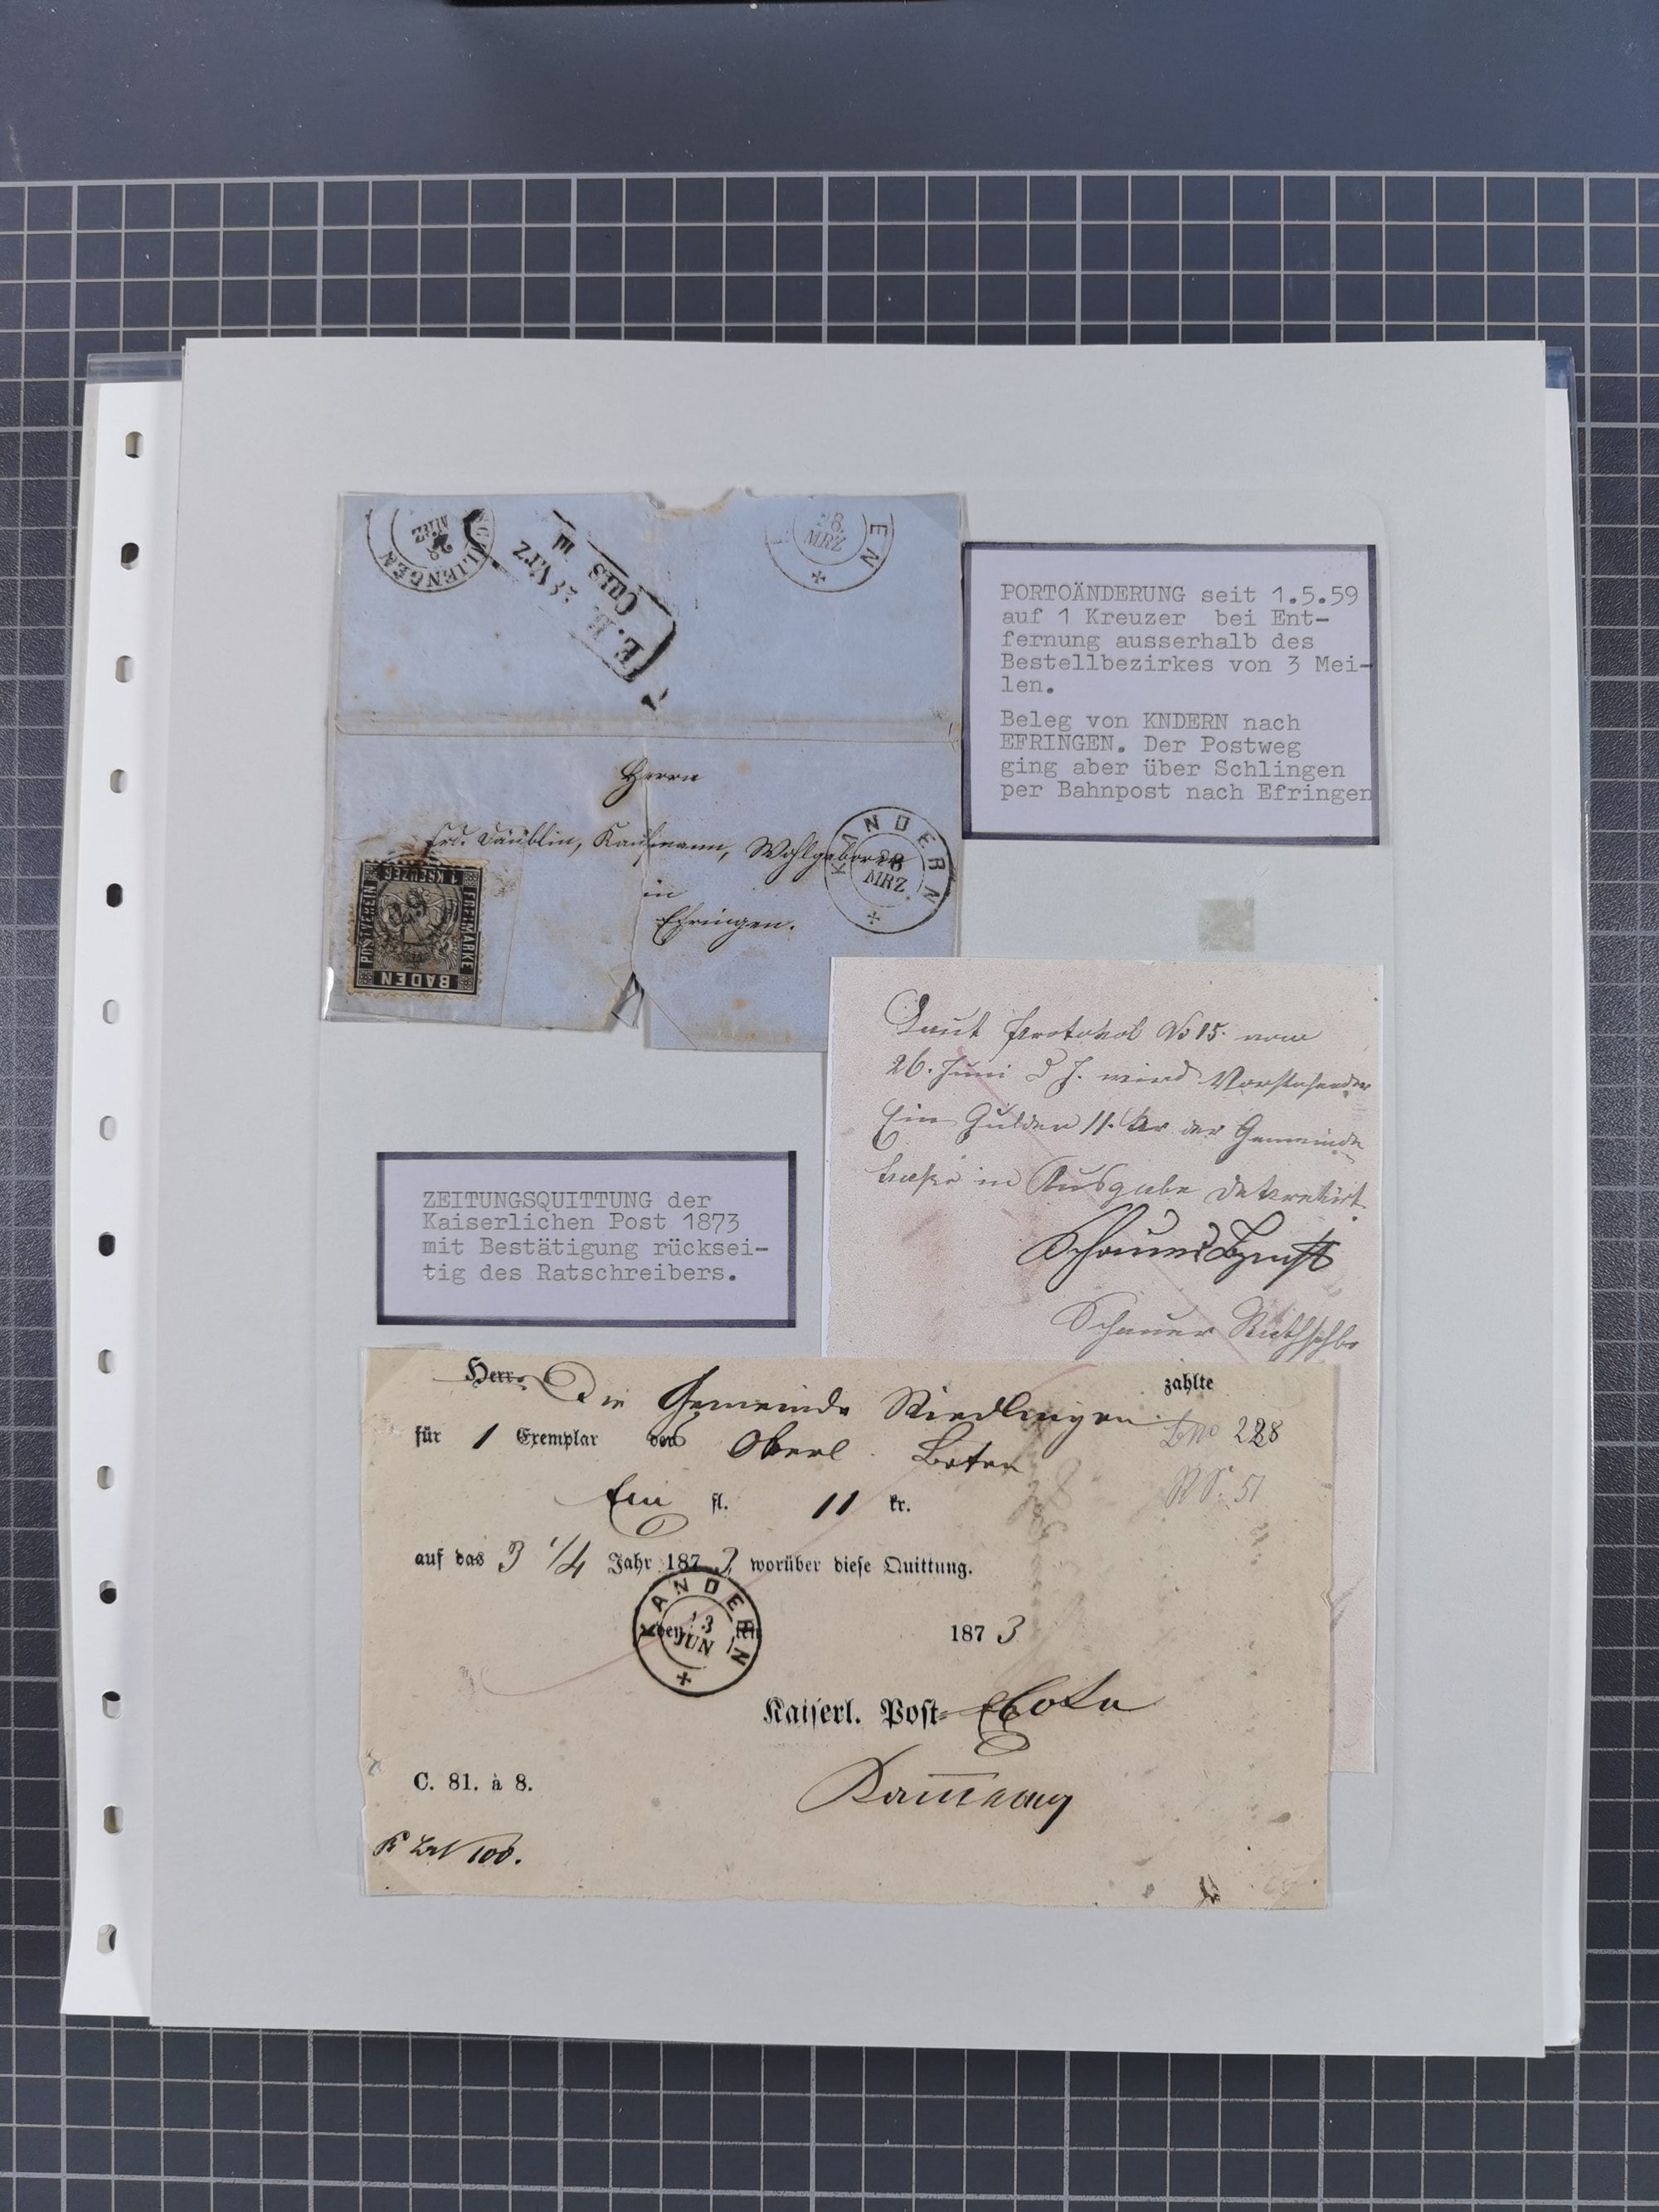 SCHLIENGEN
28
MRZ
E. B.
28 MRZ
Curs III
EN
28.
MRZ
PORTOÄNDERUNG seit 1.5.59
auf 1 Kreuzer bei Ent-
fernung ausserhalb des
Bestellbezirkes von 3 Mei-
len.
Beleg von KNDERN nach
EFRINGEN. Der Postweg
ging aber über Schlingen
per Bahnpost nach Efringen
Herrn
Frd. Däublin, Kaufmann, Wohlgeboren
in
Efringen.
KANDERN
28
MRZ
BADEN
FREIMARKE
1 KREUZER
POSTVEREIN
Laut Protokol No 15. vom
26. Juni d J. wird Vorstehender
Ein Gulden 11. kr der Gemeinde
kasse in Ausgabe dekretirt.
Schauer Rathschbr
ZEITUNGSQUITTUNG der
Kaiserlichen Post 1873
mit Bestätigung rücksei-
tig des Ratschreibers.
Herr Die Gemeinde Riedlingen zahlte
für 1 Exemplar des Oberl. Boten 228
51
Ein fl. 11 kr.
auf das 3 1/4 Jahr 1873, worüber diese Quittung.
KANDERN
13
JUN
den ten 1873
Kaiserl. Post-
C. 81. à 8.
100.